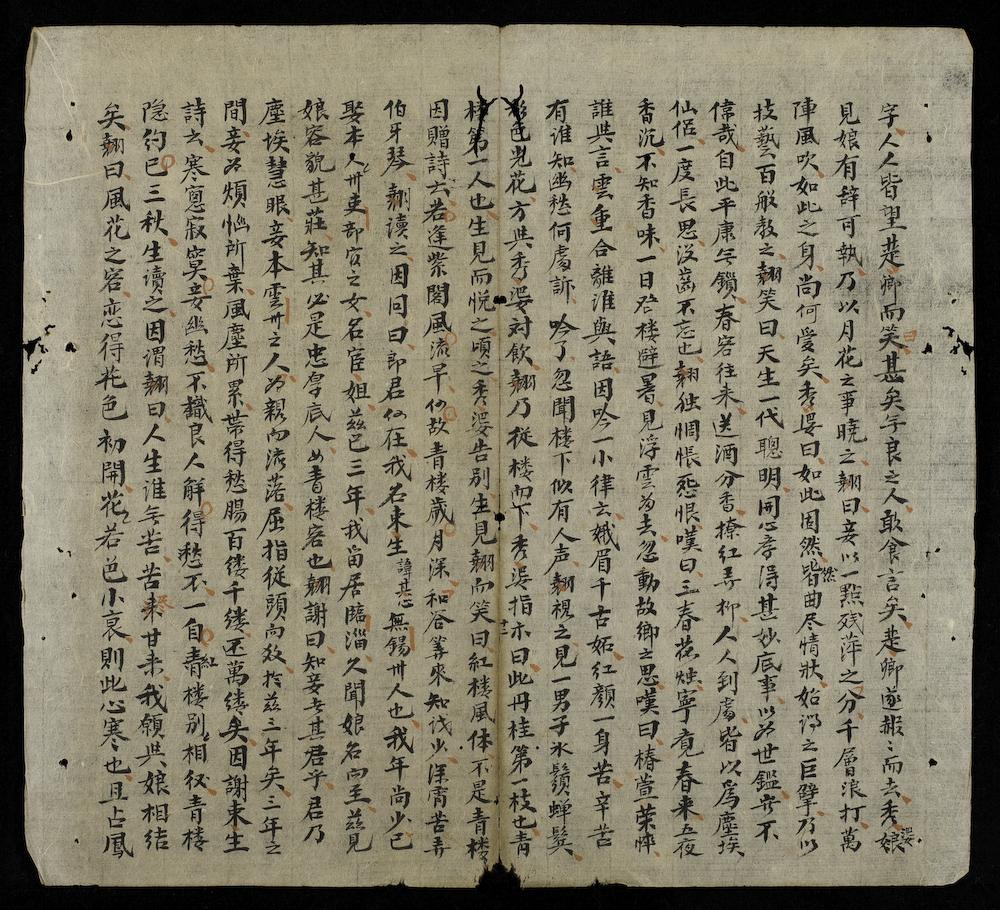 字人人皆望楚卿而笑甚矣乎良之人敢食言矣楚卿遂赧々而去秀娘婆
見娘有辞可執乃以月花之事曉之翹曰妾以一點残萍之分千層浪打萬
陣風吹如此之身尚何受矣秀婆曰如此因然皆曲尽情狀始謂之巨擘乃以
技藝百般教之翹笑曰天生一代聰明開心孝得甚妙底事以為世鑑豈不
偉哉自此平康無鎖春容往来送酒分香撩紅弄柳人人到處皆以為塵埃
仙侶一度長思没齒不忘也翹徙惆悵怨恨嘆曰三春花燭寧竟春来五夜
香沉不知香味一日登楼避暑見浮雲為去忽動故鄉之思嘆曰椿萱荣悴
誰與言雲重合離誰與語因吟一小律云娥眉千古妬紅顏一身苦辛苦
有誰知幽愁何處訴吟了忽聞楼下似有人声翹視之見一男子氷鬚蝉髩
彩色光花方與秀婆対飲翹乃従楼而下秀婆指示曰此丹桂第一枝也青
楼第一人也生見而悦之頃之秀婆告別生見翹而笑曰紅楼風体不是青楼
因贈詩云若逢紫閣風流早何故青楼歲月深和答筭來知伐少深宵苦弄
伯牙琴翹讀之因问曰郎君何在我名束生諱其心無錫州人也我年尚少已
娶本人州吏部官之女名宦姐茲已三年我留居臨淄久聞娘名而至茲見
娘容貌甚莊知其必是忠厚底人如青楼客也翹謝曰知妾者其君乎君乃
塵埃慧眼妾本雲州之人為親而流落屈指従頭而数於茲三年矣三年之
間妾為煩惱所棄風塵所累帯得愁腸百縷千縷还萬縷矣因謝束生
詩云寒窓寂寞妾幽愁不識良人解得愁不一自青紅楼別相従青楼
隐約已三秋生讀之因謂翹曰人生誰無苦苦来甘来我願與娘相結
矣翹曰風花之容恋得花色初開花々若邑小衰則此心寒也且占鳳